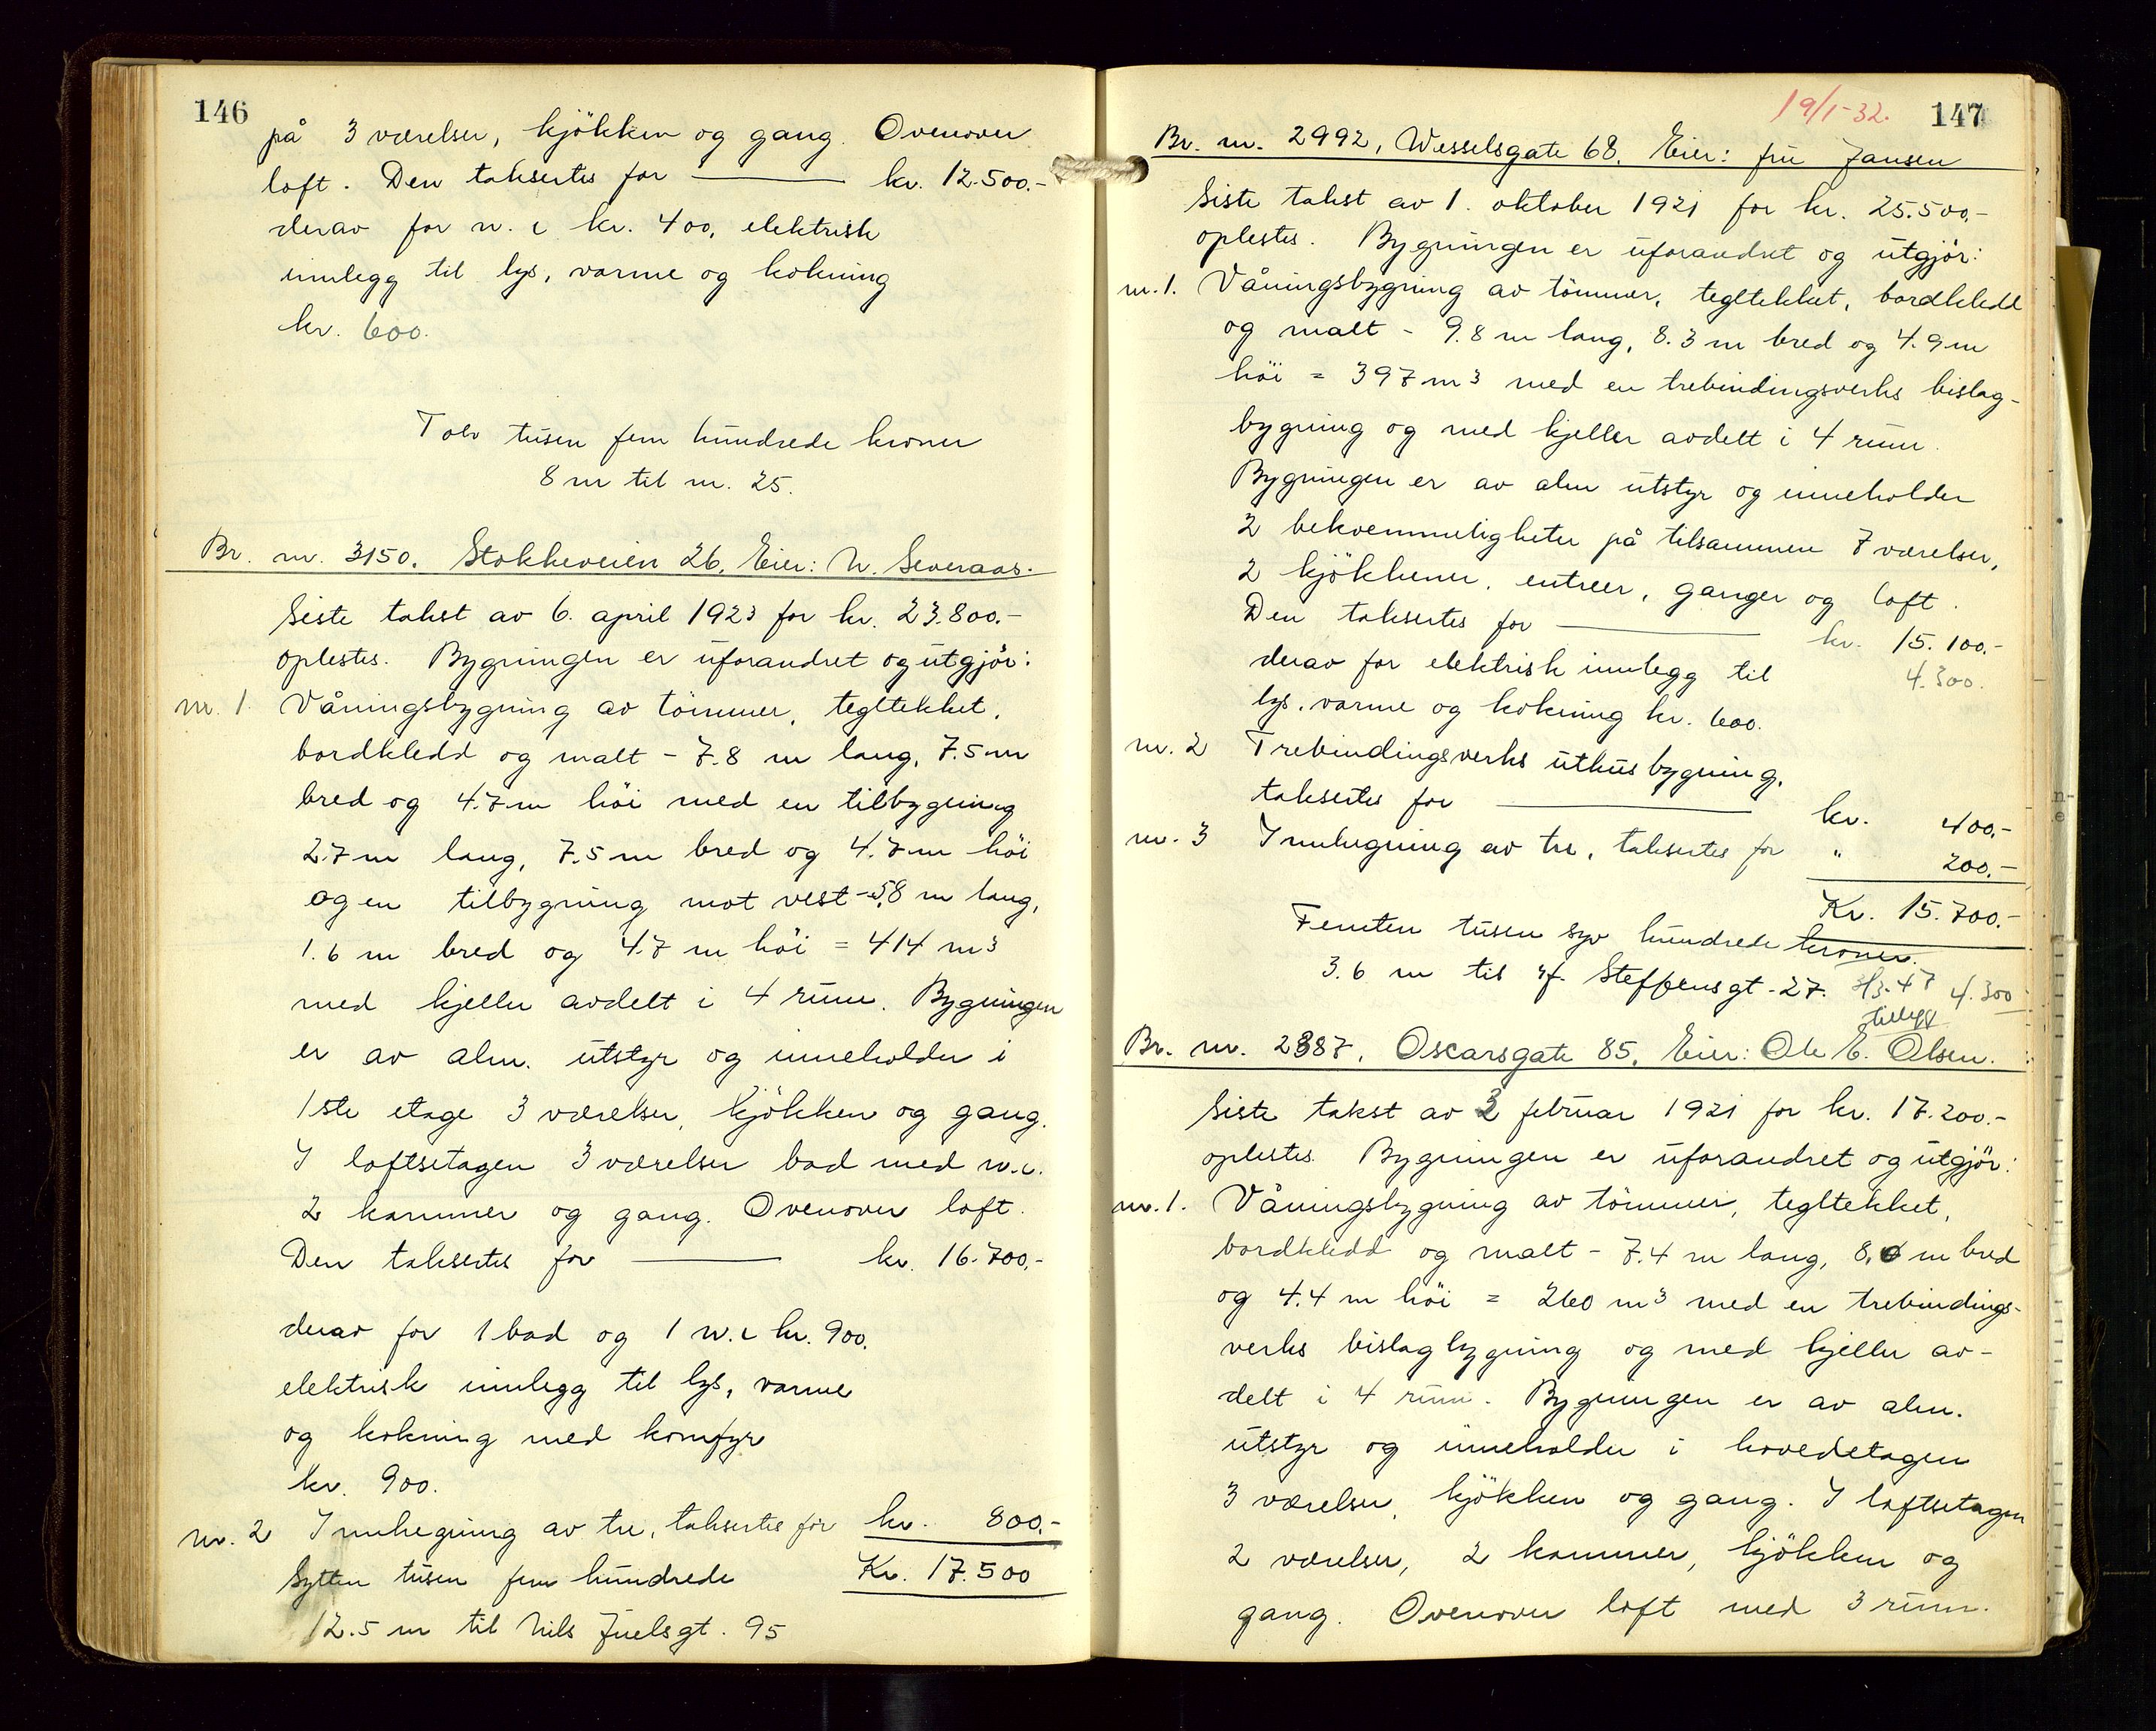 146
på 3 værelser, kjökken og gang. Ovenover
loft. Den taksertes for — kr. 12.500.-
derav for w. c kr. 400, elektrisk
innlegg til lys, varme og kokning
kr. 600.
Tolv tusen fem hundrede kroner
8 m til nr. 25.
Br. nr. 3150. Stokkeveien 26. Eier: N. Severaas.
Siste takst av 6. april 1923 for kr. 23.800.-
oplestes. Bygningen er uforandret og utgjör:
nr. 1 Våningsbygning av tömmer, tegltekket,
bordkledd og malt - 7.8 m lang, 7.5 m
bred og 4.7 m höi med en tilbygning
2.7 m lang, 7.5 m bred og 4.7 m höi
og en tilbygning mot vest - 5,8 m lang,
1.6 m bred og 4.7 m höi = 414 m3
med kjeller avdelt i 4 rum. Bygningen
er av alm. utstyr og inneholder i
1ste etage 3 værelser, kjökken og gang.
I loftsetagen 3 værelser bad med w.c.
2 kammer og gang. Ovenover loft.
Den taksertes for — kr. 16.700.-
derav for 1 bad og 1 w.c kr. 900.
elektrisk innlegg til lys, varme
og kokning med komfyr
kr. 900.
nr. 2 Innhegning av tre, taksertes for kr. 800.-
Sytten tusen fem hundrede Kr. 17.500
12.5 m til Nils Juelsgt. 95
19/1-32. 147
Br. nr. 2992, Wesselsgate 68. Eier: fru Jansen
Siste takst av 1. oktober 1921 for kr. 25.500.-
oplestes. Bygningen er uforandret og utgjör:
nr. 1. Våningsbygning av tömmer, tegltekket, bordkledd
og malt - 9.8 m lang, 8.3 m bred og 4.9 m
höi = 397 m3 med en trebindingsverks bislag-
bygning og med kjeller avdelt i 4 rum.
Bygningen er av alm utstyr og inneholder
2 bekvemmeligheter på tilsammen 7 værelser,
2 kjökkener, entreer, ganger og loft.
Den taksertes for — kr. 15.100.-
derav for elektrisk innlegg til 4.300.
lys, varme og kokning kr. 600.
nr. 2 Trebindingsverks uthusbygning,
taksertes for — kr. 400.-
nr. 3 Innhegning av tre, taksertes for " 200.-
Kr. 15.700.-
Femten tusen syv hundrede kroner.
3.6 m til Steffensgt. 27. 3/3-47 4.300
tillegg
Br. nr. 2887, Oscarsgate 85. Eier: Ole E. Olsen.
Siste takst av 2 februar 1921 for kr. 17.200.-
oplestes. Bygningen er uforandret og utgjör:
nr. 1. Våningsbygning av tömmer, tegltekket,
bordkledd og malt - 7.4 m lang, 8. m bred
og 4.4 m höi = 260 m3 med en trebindings-
verks bislagbygning og med kjeller av-
delt i 4 rum. Bygningen er av alm.
utstyr og inneholder i hovedetagen
3 værelser, kjökken og gang. I loftsetagen
2 værelser, 2 kammer, kjökken og
gang. Ovenover loft med 3 rum.